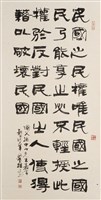 民國之民權唯民國之國
民乃能享之必不輕授此
權於反對民國之人使得
藉以破壞民國